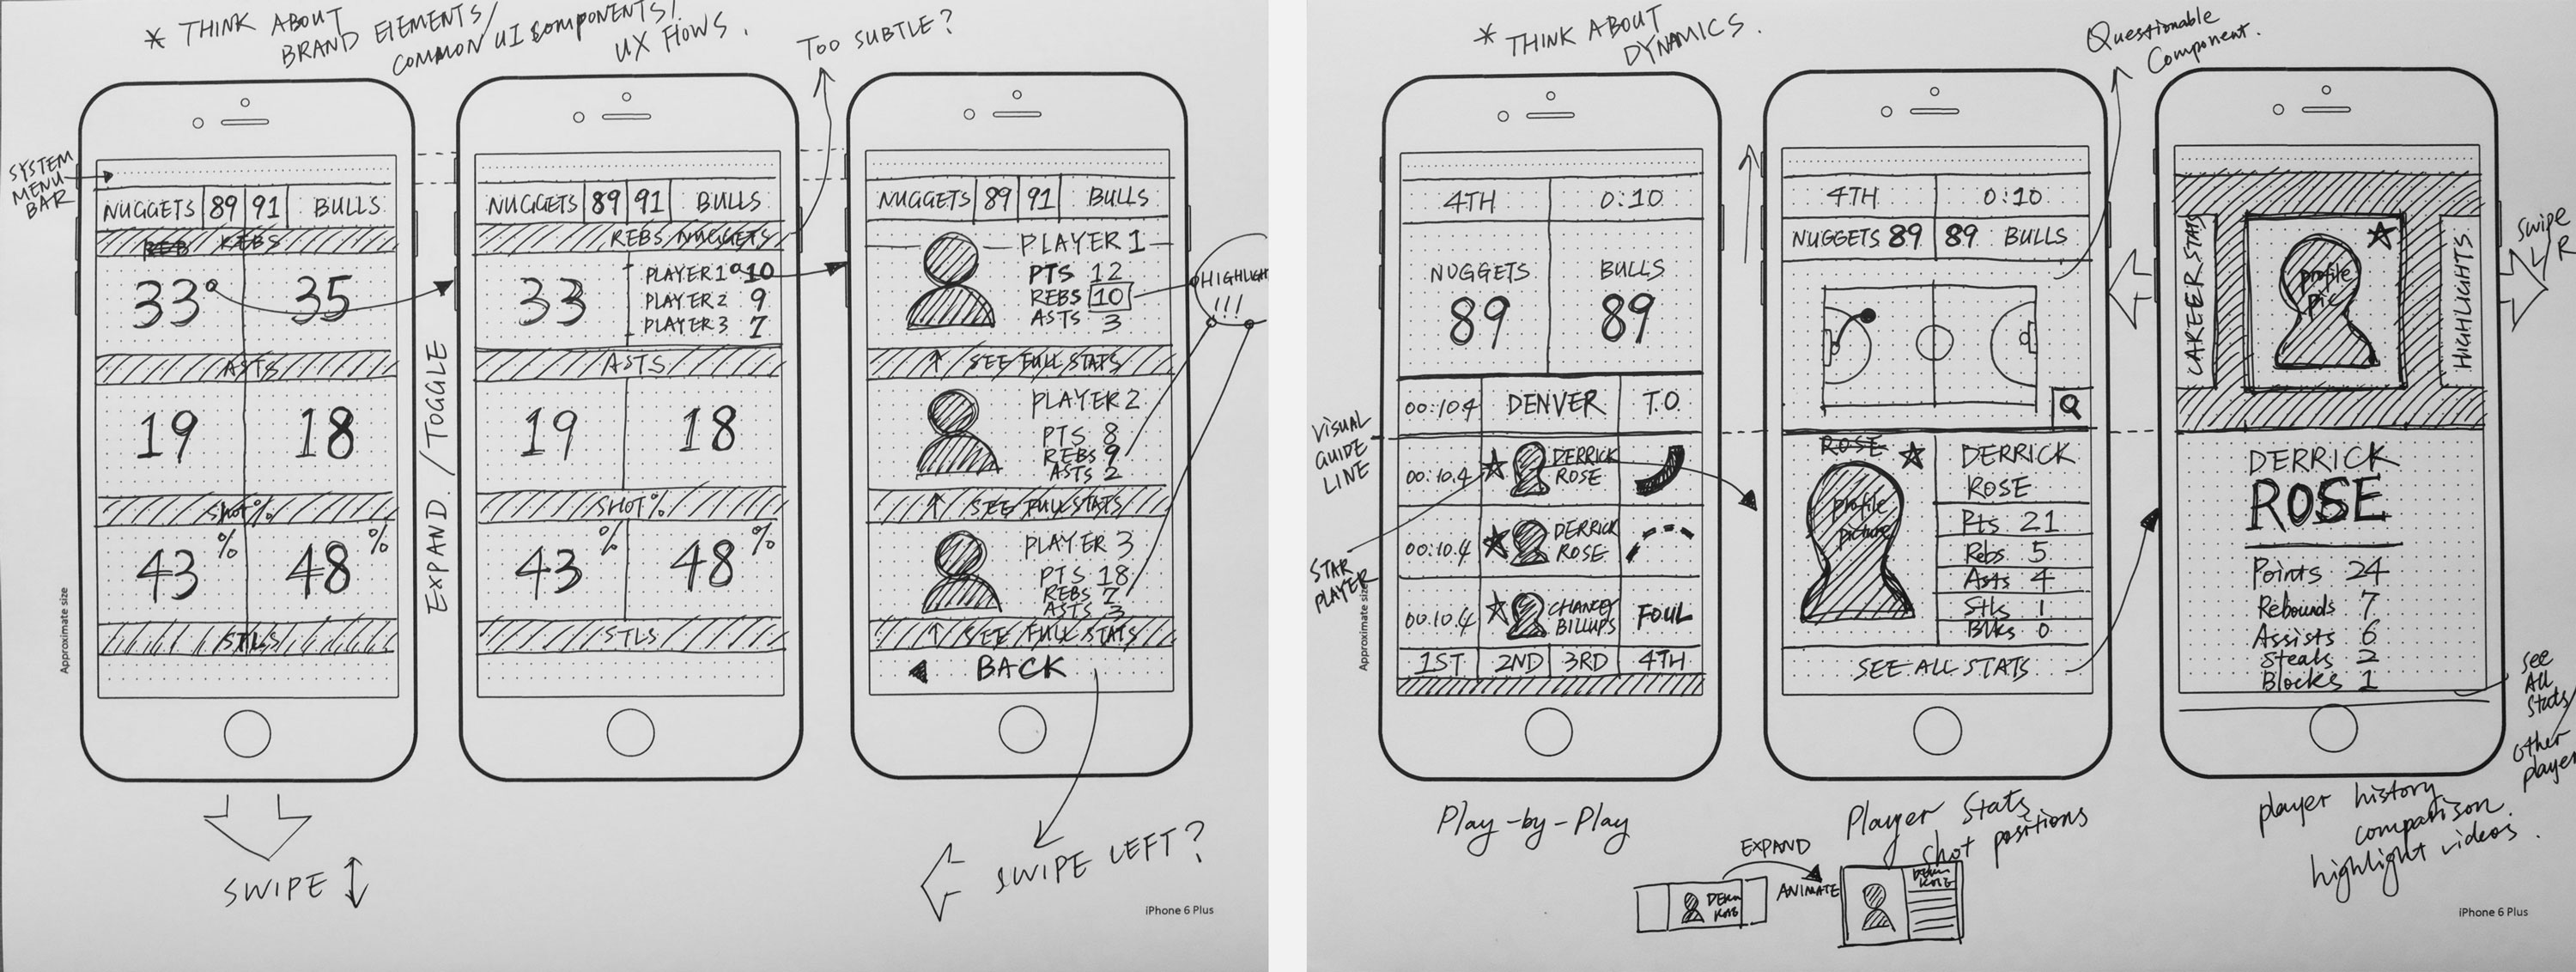 * THINK ABOUT
BRAND ElEMENTS/
COMMON UI COMPONENTS/
UX FLOWS.
TOO SUBTLE?
SYSTEM
MENU
BAR
NUGGETS 89 91 BULLS
REBS
33 35
ASTS
19 18
SHOT%
43% 48%
STLS
Approximate size
SWIPE
EXPAND / TOGGLE
NUGGETS 89 91 BULLS
REBS NUGGETS
33
PLAYER 1 10
PLAYER 2 9
PLAYER 3 7
ASTS
19 18
SHOT%
43% 48%
STLS
NUGGETS 89 91 BULLS
PLAYER 1
PTS 12
REBS 10
ASTS 3
↑ SEE FULL STATS
PLAYER 2
PTS 8
REBS 9
ASTS 2
↑ SEE FULL STATS
PLAYER 3
PTS 18
REBS 7
ASTS 3
↑ SEE FULL STATS
BACK
!!!
SWIPE LEFT?
iPhone 6 Plus
* THINK ABOUT
DYNAMICS.
Questionable
Component.
VISUAL
GUIDE
LINE
STAR
PLAYER
Approximate size
4TH 0:10
NUGGETS BULLS
89 89
00:10.4 DENVER T.O.
00:10.4 DERRICK
ROSE
00:10.4 DERRICK
ROSE
00.10.4 CHANCEY
BILLUPS FOUL
1ST 2ND 3RD 4TH
Play-by-Play
4TH 0:10
NUGGETS 89 89 BULLS
ROSE
profile
picture
DERRICK
ROSE
Pts 21
Rebs 5
Asts 4
Stls 1
Blks 0
SEE ALL STATS
Player Stats
shot positions
EXPAND
ANIMATE
CAREER STATS
profile
pic
HIGHLIGHTS
SWIPE
L/R
DERRICK
ROSE
Points 24
Rebounds 7
Assists 6
Steals 2
Blocks 1
See
All
Stats/
other
player
player history
comparison.
highlight videos.
iPhone 6 Plus